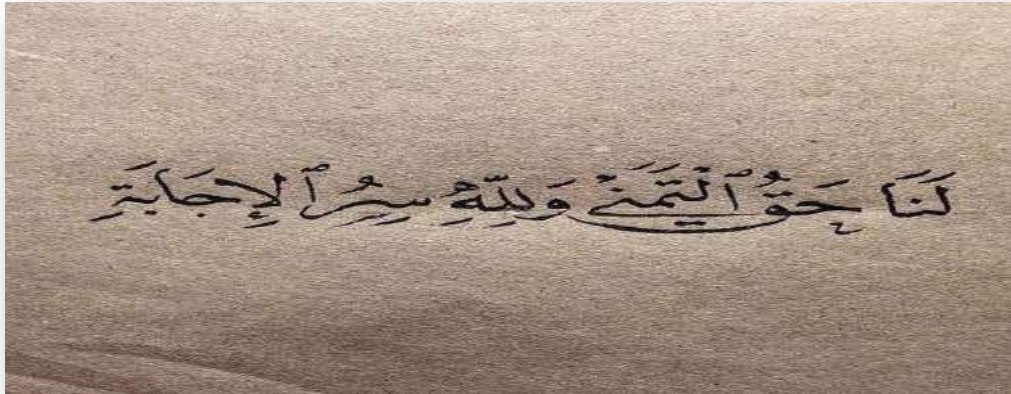 لَنَا حَقُّ ٱلتَّمَنِّي وَلِلَّهِ سِرُّ ٱلْإِجَابَةِ